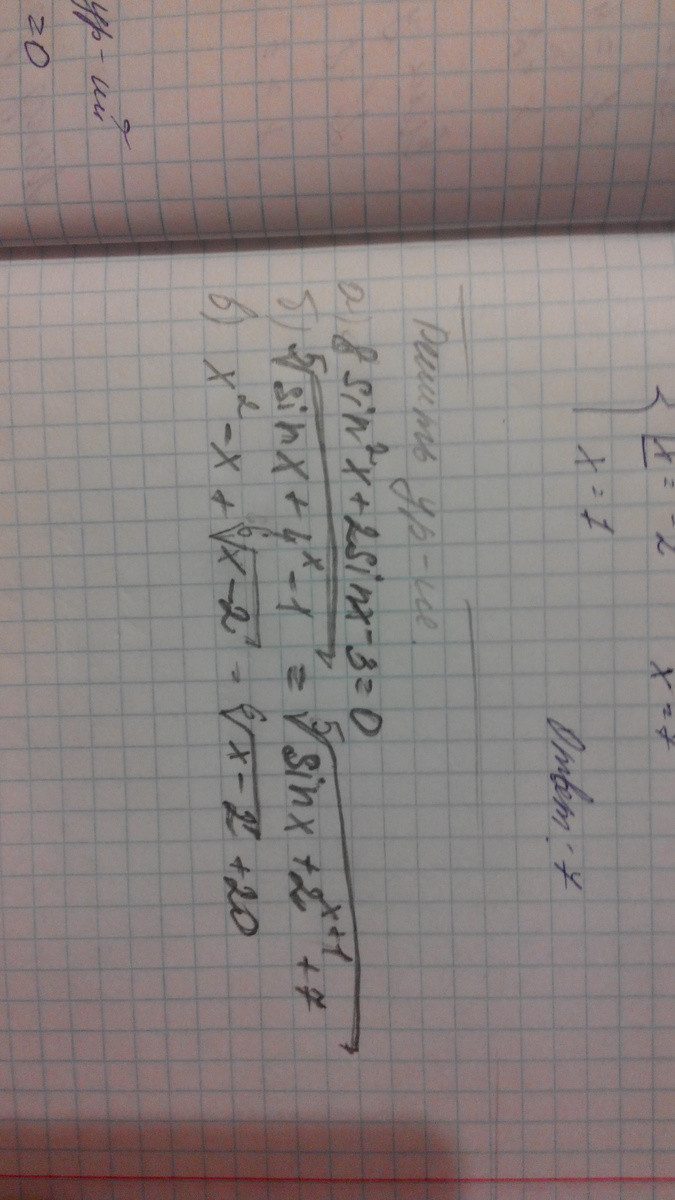 x = -2 x = 7
x = 1
Ответ: 7
Решить ур-ие.
а) 8 sin²x + 2sinx - 3 = 0
б) ⁵√(sinx + 4ˣ - 1) = ⁵√(sinx + 2ˣ⁺¹ + 7)
в) x² - x + ⁶√(x - 2) = ⁶√(x - 2) + 20
ур-ий
=0